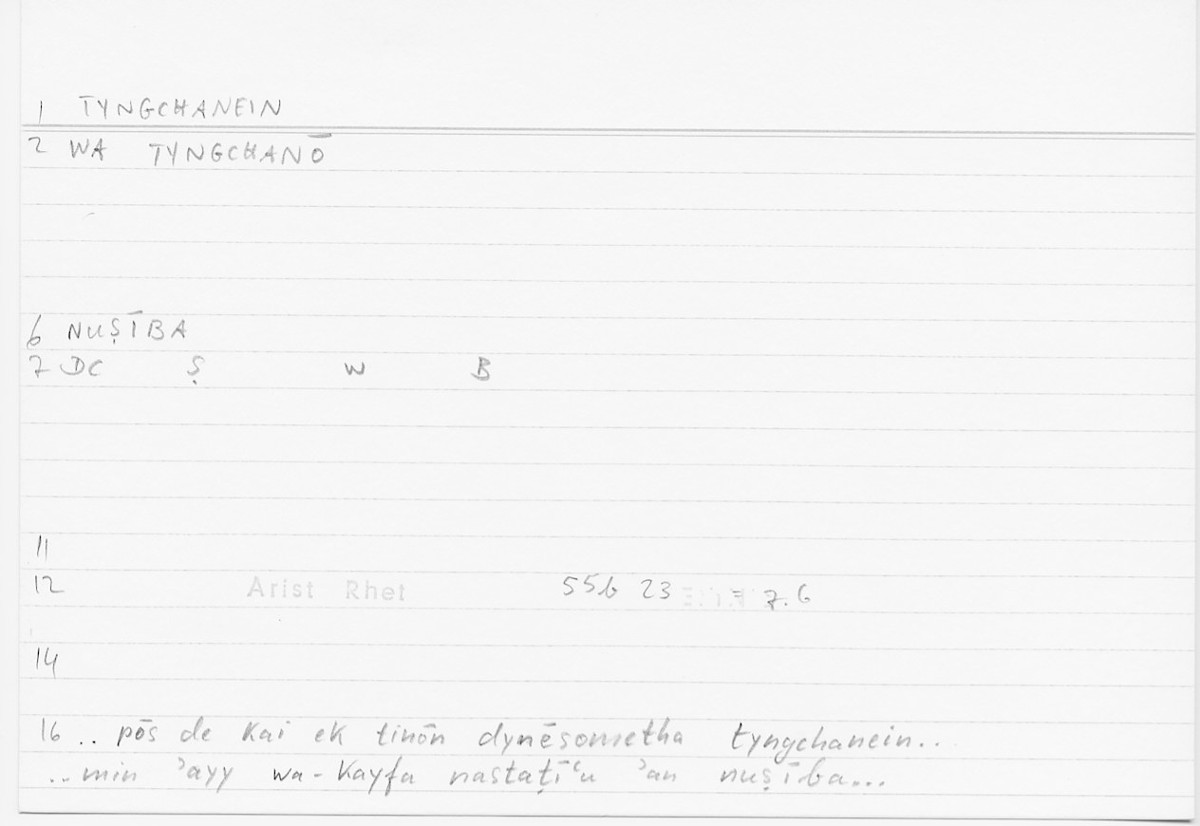 1 TYNGCHANEIN
2 WA TYNGCHANŌ
6 NUṢĪBA
7 DC Ṣ W B
11
12 Arist Rhet 55b 23 = 7.6
14
16 .. pōs de kai ek tinōn dynēsometha tyngchanein..
..min ʾayy wa-kayfa nastaṭīʿu ʾan nuṣība...